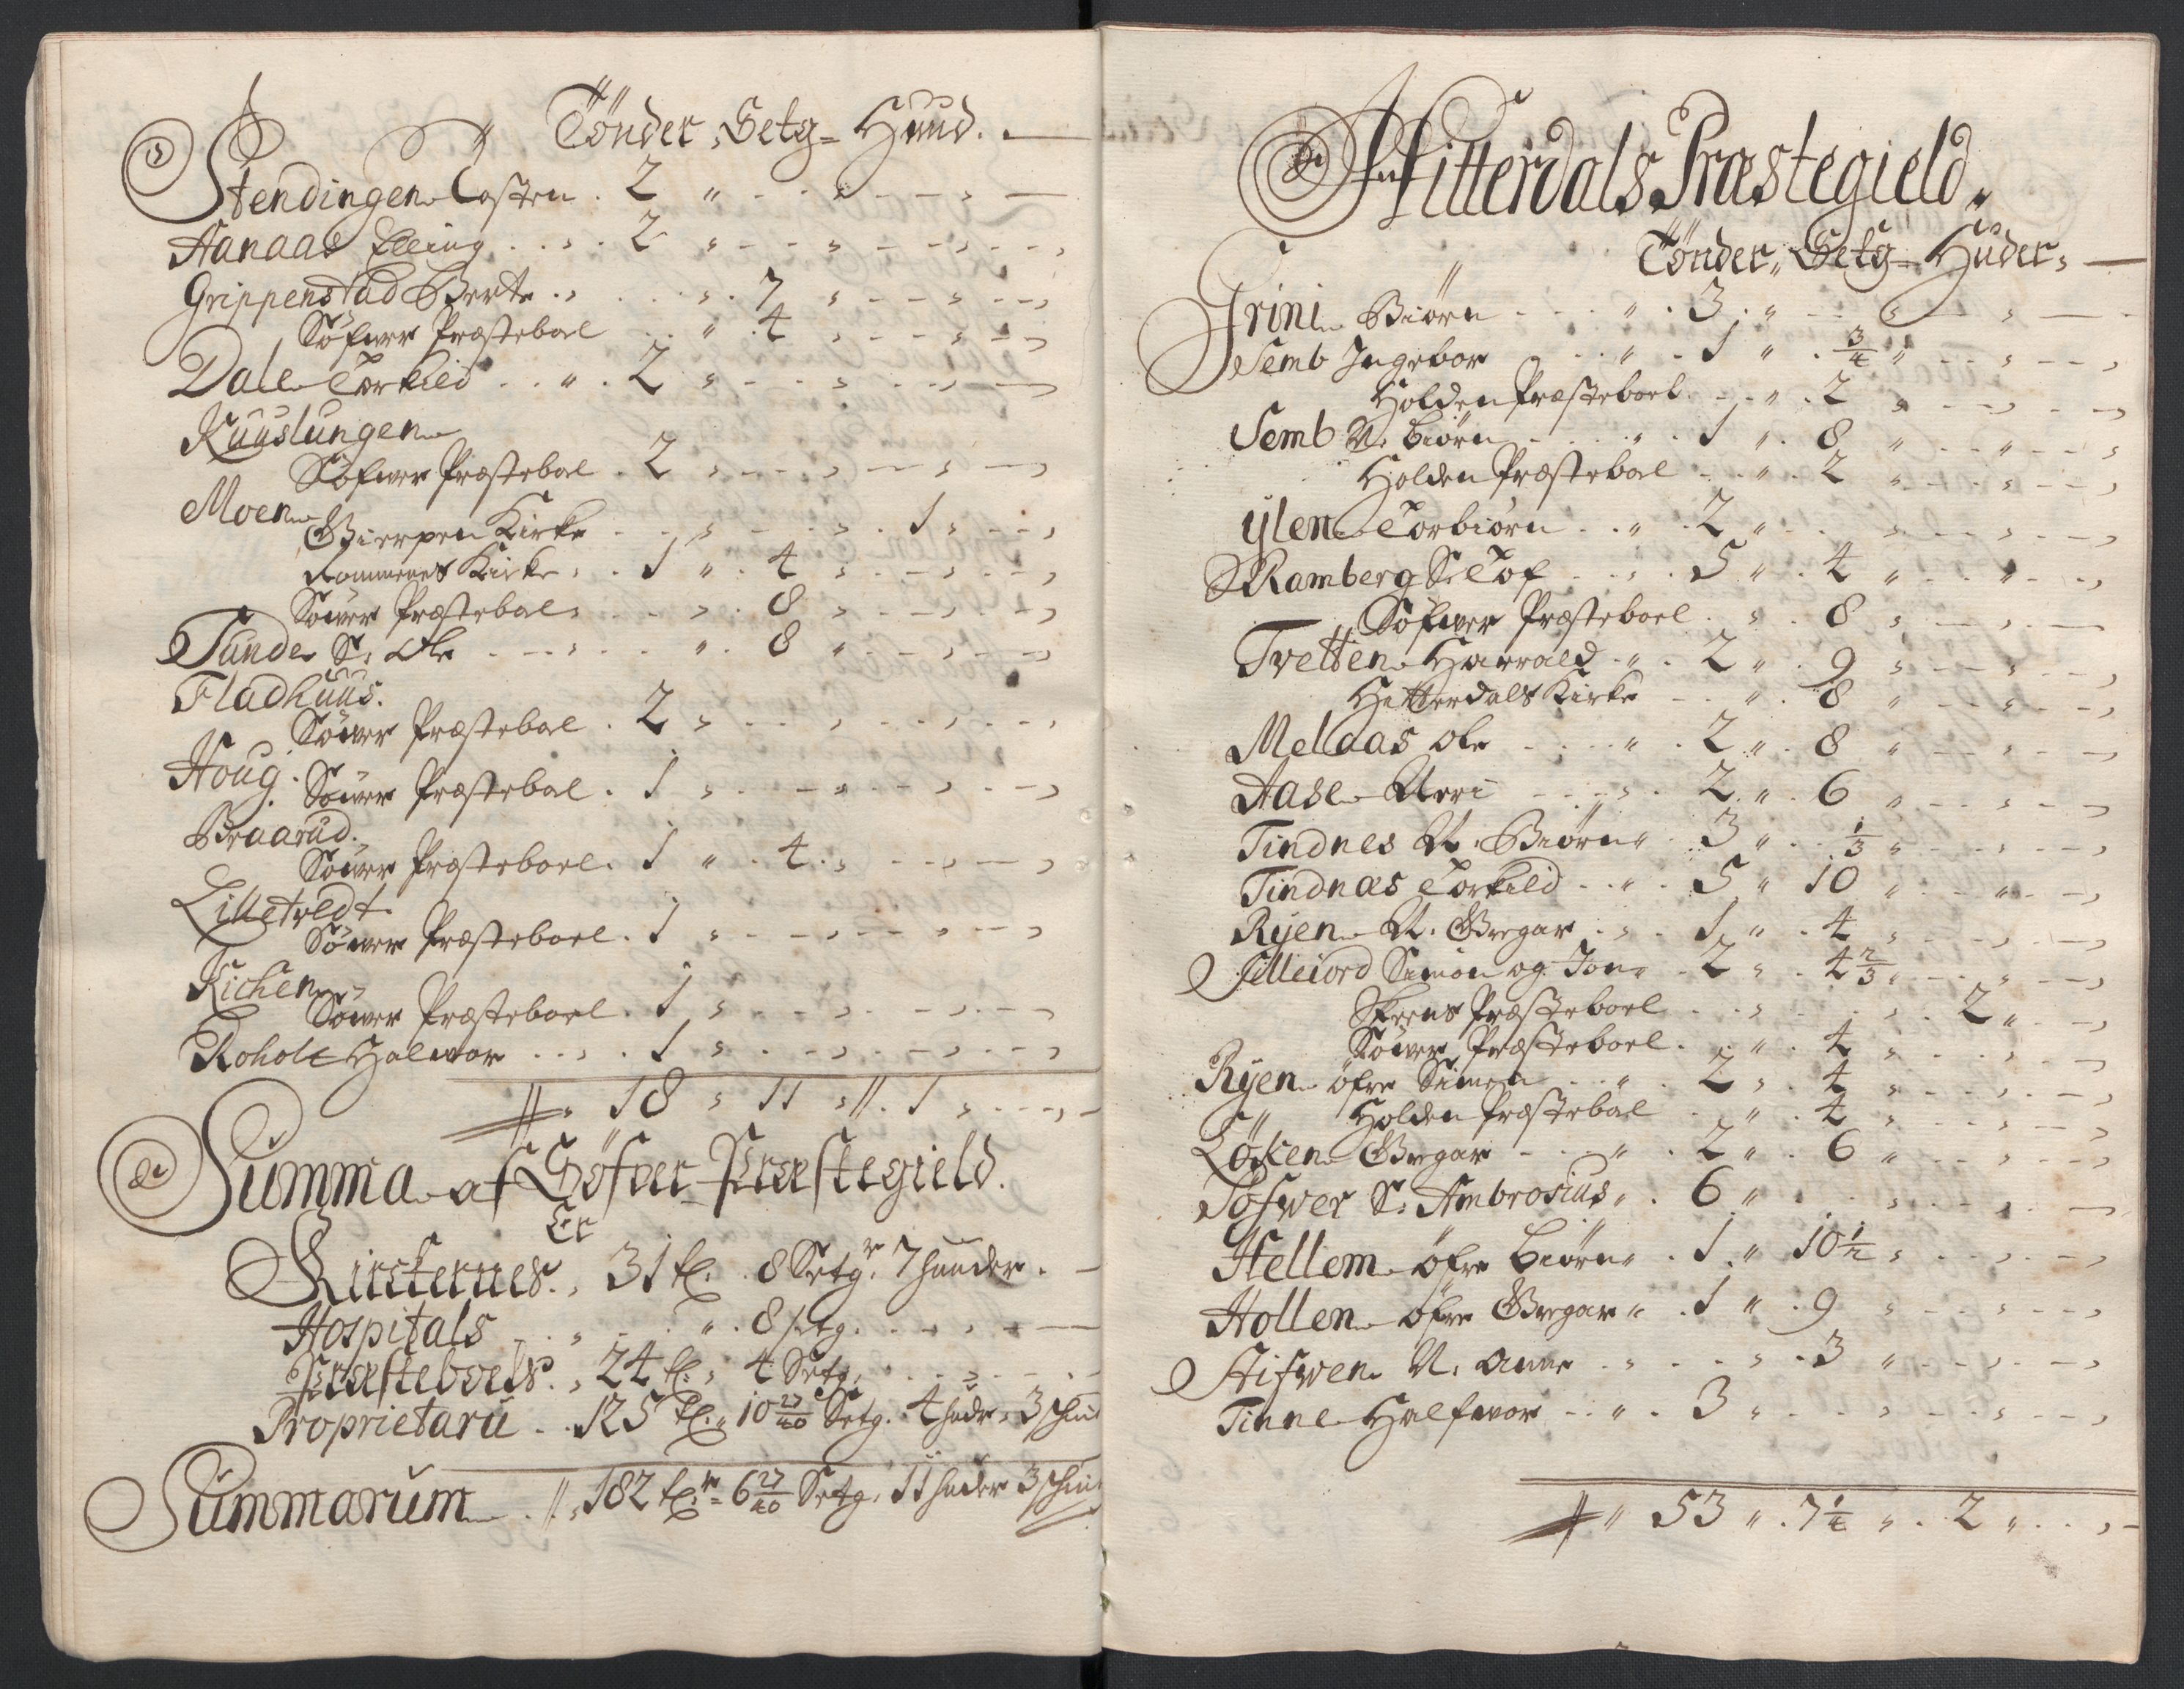 Tönder, Setg= Huud.
Stendingen Casten . 2 "
Aanaas Elling . 2
Grippenstad Berte . 7
Söfver Præstebol . 4
Dale Torkild . 2
Kuuslungen
Söfver Præstebol . 2
Moen
Gierpen Kirke . 1
Rommenes Kirke . 1 " 4
Söver Præstebol . 8
Sunde S: Ole . 8
Fladhuus.
Söver Præstebol . 2
Houg. Söver Præstebol . 1
Braarud.
Söver Præsteboel . 1 " 4
Lilletvedt
Söver Præsteboel . 1
Kichen
Söver Præsteboel . 1
Roholt Halvor . 1
18 " 11 " 1
Summa af Söfver Præstegield.
Er
Kirckernes . 31 tl. 8 Setgr 7 huuder.
Hospitals " 8 setg.
Præsteboels . 24 tl. 4 Setg.
Proprietarii . 125 tl. 10 27/40 Setg. 4 hudr 3 schin
Summarum . 182 tlr 6 27/40 Setg. 11 huder 3 schin
Hitterdals Præstegield.
Tönder, Setg= Huder,
Grini Biörn " 3
Semb Ingebor " 1 " 3/4
Holden Præsteboel " 2
Semb N. Biörn " 1 " 8
Holden Præstebol " 2
Ylen Torbiörn " 2
Ramberg S: Tof . 5 " 4
Söfver Præsteboel . 8
Tvetten Harrald " 2 " 9
Hitterdals Kirke " 8
Melaas Ole " 2 " 8
Aase Anri . 2 " 6
Tindnes N. Biörn " 3 " 1/3
Tindnæs Torkild " 5 " 10
Ryen N. Gregar . 1 " 4
Silleiord Simon og Jon . 2 " 4 2/3
Skeens Præsteboel . 2
Söver Præsteboel . 4
Ryen öfre Simen . 2 " 4
Holden Præstebol " 4
Löcken Gregar " 2 " 6
Sofver S. Ambrosius . 6
Hellem öfre Biörn . 1 " 10 1/2
Hollen öfre Gregar " 1 " 9
Hifven N. Anne . 3
Tinne Halfvor " 3
" 53 " 7 1/4 " 2